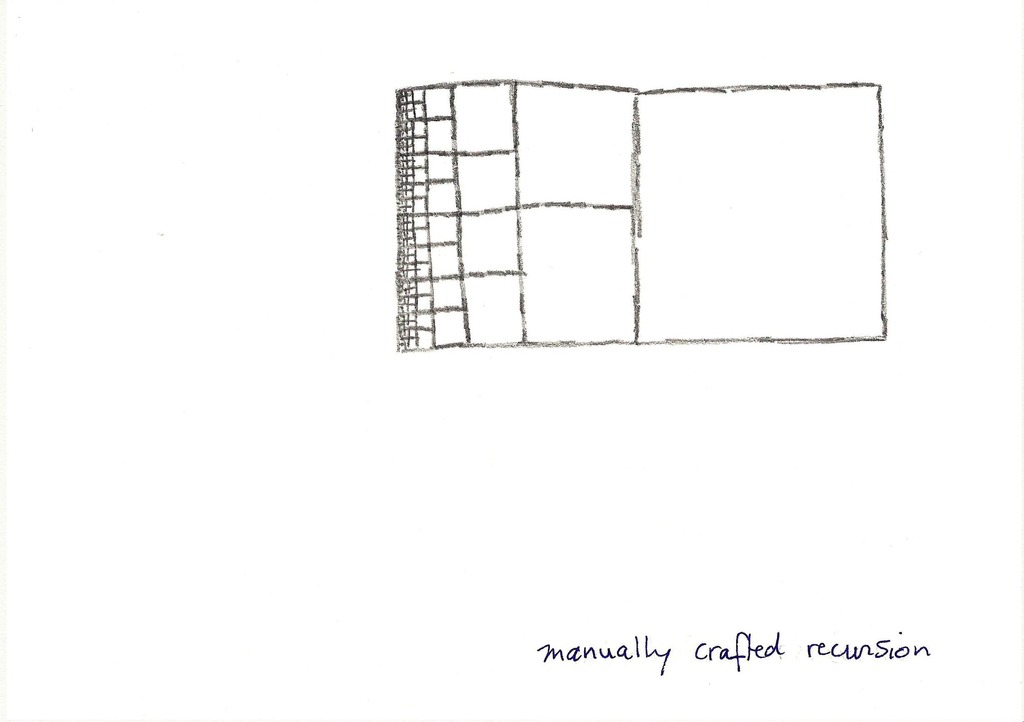 manually crafted recursion